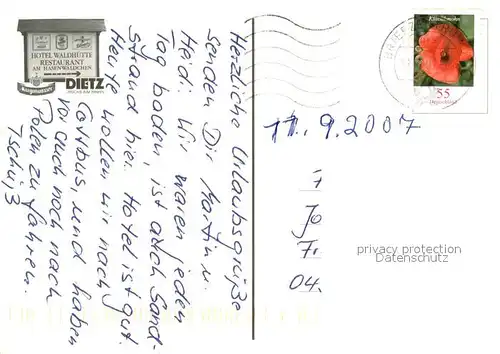 HOTEL WALDHÜTTE
RESTAURANT
AM HASENWÄLDCHEN
DIETZ
Herzliche Urlaubsgrüße
senden Dir Martin u.
Heidi. Wir waren jeden
Tag baden, ist auch Sand-
strand hier. Hotel ist gut.
Heute wollen wir nach
Cottbus, und haben
vor auch noch nach
Polen zu fahren.
Tschüß
Klatschmohn
55
Deutschland
11.9.2007
Jo
Fr
04.
privacy protection
Datenschutz